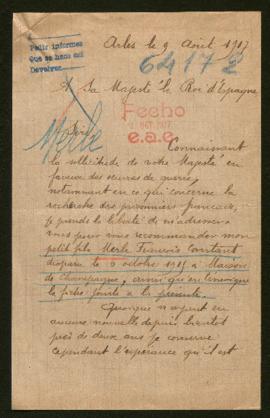 Arles le 9 Août 1917
Pedir informes
que se hace así
64172
A Sa Majesté le Roi d'Espagne
Fecho
OCT. 1917
e.a.e.
Merle
Sire
Connaissant
la sollicitude de votre Majesté en
faveur des œuvres de guerre,
notamment en ce qui concerne la
recherche des prisonniers français,
je prends la liberté de m'adresser
vous pour vous recommander mon
petit fils Merle François Constant
disparu le 6 octobre 1915 à Maison
de Champagne, ainsi qu'en témoigne
la fiche jointe à la présente.
Quoique n'ayant eu
aucune nouvelle depuis bientôt
près de deux ans je conserve
cependant l'espérance qu'il est